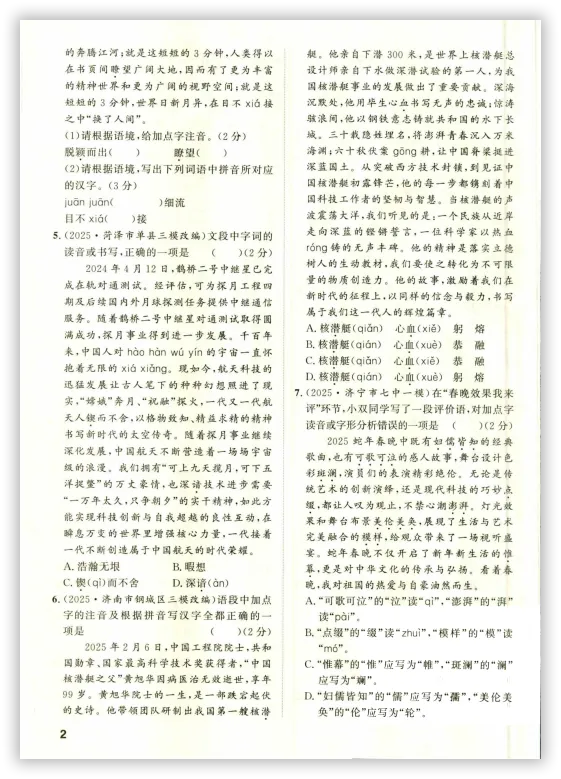 的奔腾江河;就是这短短的 3 分钟,人类得以
在书页间瞭望广阔大地,因而有了更为丰富
的精神世界和更为广阔的视野空间;就是这
短短的 3 分钟,世界日新月异,在目不 xiá 接
之中“换了人间”。
(1)请根据语境,给加点字注音。(2 分)
脱颖而出(　　) 瞭望(　　)
(2)请根据语境,写出下列词语中拼音所对应
的汉字。(3 分)
juān juān(　　)细流
目不 xiá(　　)接
5. (2025·菏泽市单县三模改编)文段中字词的
读音或书写,正确的一项是 (　　)(2分)
2024 年 4 月 12 日,鹊桥二号中继星已完
成在轨对通测试。经评估,可为探月工程四
期及后续国内外月球探测任务提供中继通信
服务。随着鹊桥二号中继星对通测试取得圆
满成功,探月事业得到进一步发展。千百年
来,中国人对 hào hàn wú yín 的宇宙一直怀
抱着无限的 xiá xiǎng。现如今,航天科技的
迅猛发展让古人笔下的种种幻想照进了现
实,“嫦娥”奔月、“祝融”探火,一代又一代航
天人锲而不舍,以格物致知、精益求精的精神
书写新时代的太空传奇。随着探月事业继续
深化发展,中国航天不断营造着一场场宇宙
级的浪漫。我们拥有“可上九天揽月,可下五
洋捉鳖”的万丈豪情,也深谙技术进步需要
“一万年太久,只争朝夕”的实干精神,如此方
能实现科技创新与自我超越的良性互动,在
瞬息万变的世界里增强核心力量,一代接着
一代不断创造属于中国航天的时代荣耀。
A. 浩瀚无垠 B. 暇想
C. 锲(qì)而不舍 D. 深谙(àn)
6. (2025·济南市钢城区三模改编)语段中加点
字的注音及根据拼音写汉字全都正确的一
项是 (　　)(2分)
2025 年 2 月 6 日,中国工程院院士,共和
国勋章、国家最高科学技术奖获得者,“中国
核潜艇之父”黄旭华因病医治无效逝世,享年
99 岁。黄旭华院士的一生,是一部跌宕起伏
的史诗。他带领团队研制出我国第一艘核潜
2
艇。他亲自下潜 300 米,是世界上核潜艇总
设计师亲自下水做深潜试验的第一人,为我
国核潜艇事业的发展做出了重要贡献。深海
沉默处,他用毕生心血书写无声的忠诚;惊涛
骇浪间,他以钢铁意志铸就共和国的水下长
城。三十载隐姓埋名,将澎湃青春沉入万米
海渊;六十秋伏案 gōng 耕,让中国脊梁挺进
深蓝国土。从突破西方技术封锁,到见证中
国核潜艇初露锋芒,他的每一步都镌刻着中
国科技工作者的坚韧与智慧。当核潜艇的声
波震荡大洋,我们听见的是:一个民族从近岸
走向深蓝的铿锵誓言,一位科学家以热血
róng 铸的无声丰碑。他的精神是落实立德
树人的生动教材,我们要使之转化为不可限
量的物质创造力。他的故事,激励着我们在
新时代的征程上,以同样的信念与毅力,书写
属于我们这一代人的辉煌篇章。
A. 核潜艇(qiǎn) 心血(xiě) 躬 熔
B. 核潜艇(qián) 心血(xuè) 恭 融
C. 核潜艇(qiǎn) 心血(xiě) 恭 融
D. 核潜艇(qián) 心血(xuè) 躬 熔
7. (2025·济宁市七中一模)在“春晚效果我来
评”环节,小双同学写了一段评价语,对加点字
读音或字形分析错误的一项是 (　　)(2分)
2025 蛇年春晚中既有如儒皆知的经典
歌曲,也有可歌可泣的感人故事,舞台设计色
彩斑澜,演员们的表演精彩绝伦。无论是传
统艺术的创新演绎,还是现代科技的巧妙点
缀,都让人叹为观止,不禁心潮澎湃。灯光效
果和舞台布景美伦美奂,展现了生活与艺术
完美融合的模样,给观众带来了一场视听盛
宴。蛇年春晚不仅开启了新年新生活的惟
幕,更是对中华文化的传承与弘扬。看着春
晚,我对祖国的热爱与自豪油然而生。
A. “可歌可泣”的“泣”读“qì”,“澎湃”的“湃”
读“pài”。
B. “点缀”的“缀”读“zhuì”,“模样”的“模”读
“mó”。
C. “惟幕”的“惟”应写为“帷”,“斑澜”的“澜”
应写为“斓”。
D. “妇儒皆知”的“儒”应写为“孺”,“美伦美
奂”的“伦”应写为“轮”。